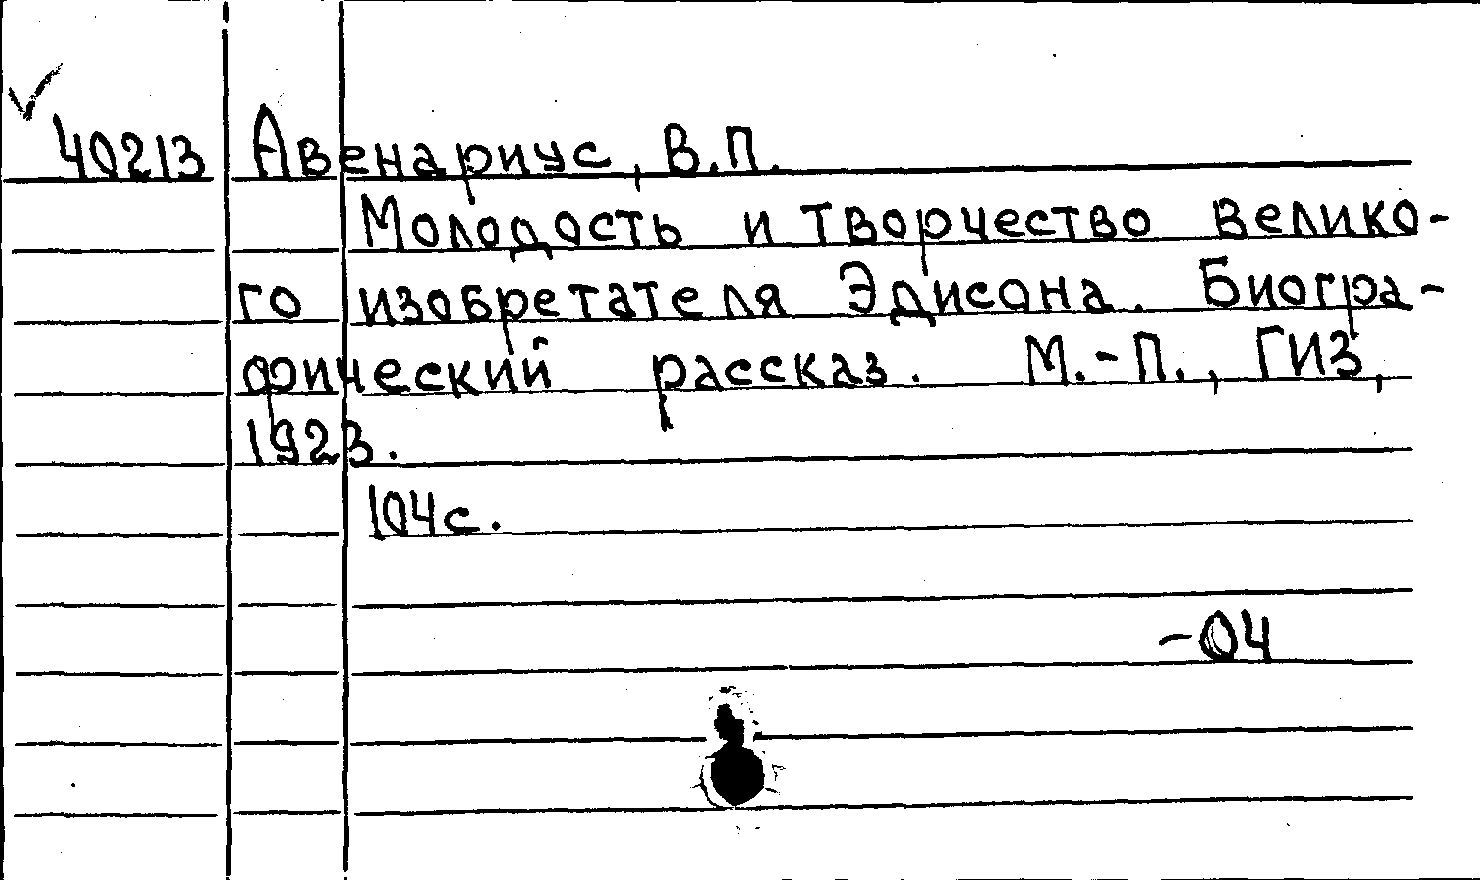 40213 Авенариус, В.П.
Молодость и творчество велико-
го изобретателя Эдисона. Биогра-
фический рассказ. М.-П., ГИЗ,
1923.
104с.
-04